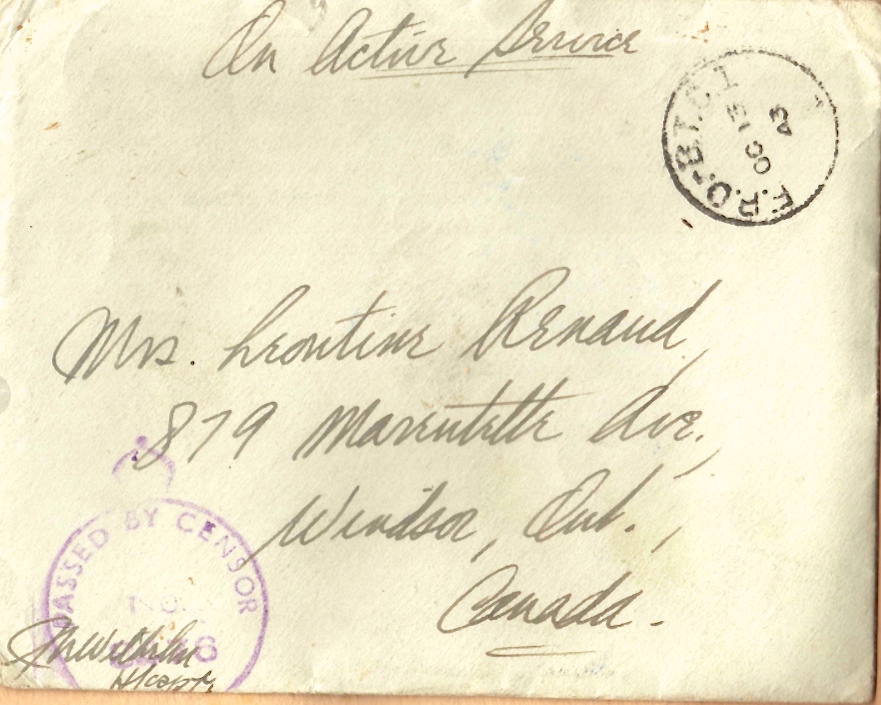 On Active Service
F.P.O.-B.T.C.1
OC 15
43
Mrs. Leontine Renaud,
879 Marentette Ave.,
Windsor, Ont.,
Canada.
PASSED BY CENSOR